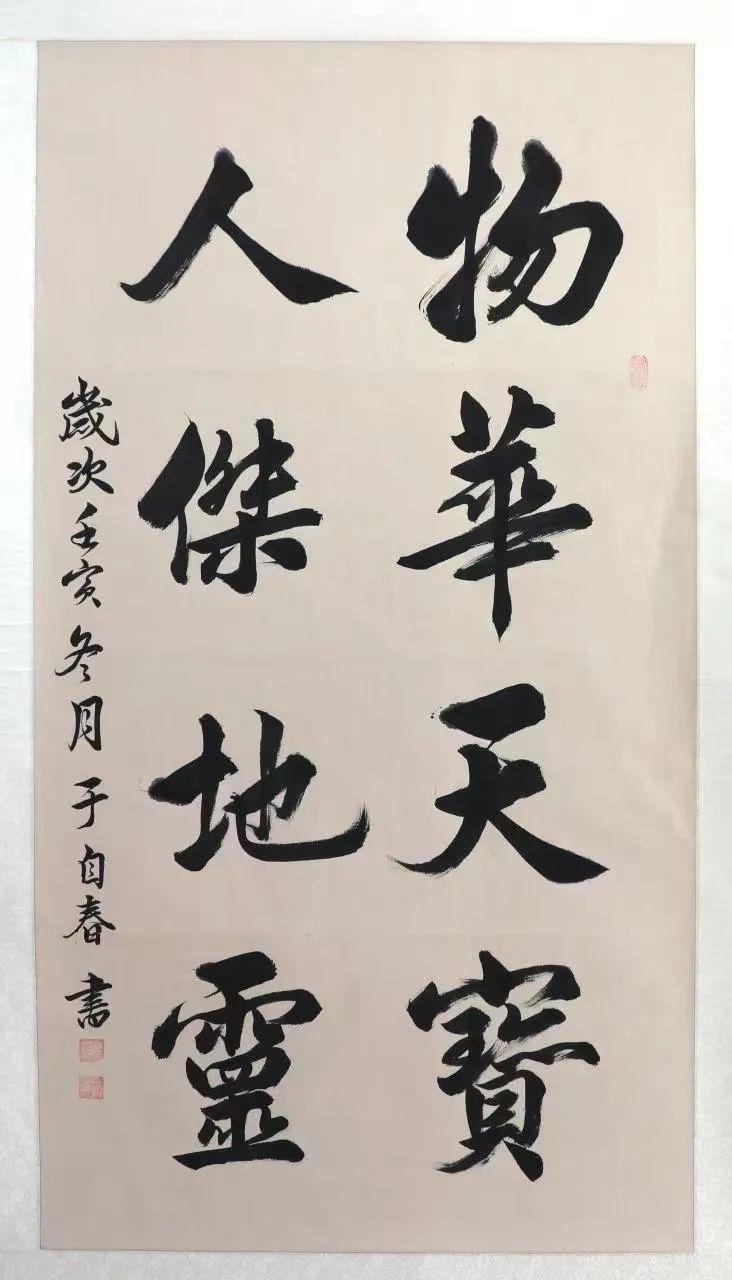 物華天寶
人傑地靈
歲次壬寅冬月于自春書